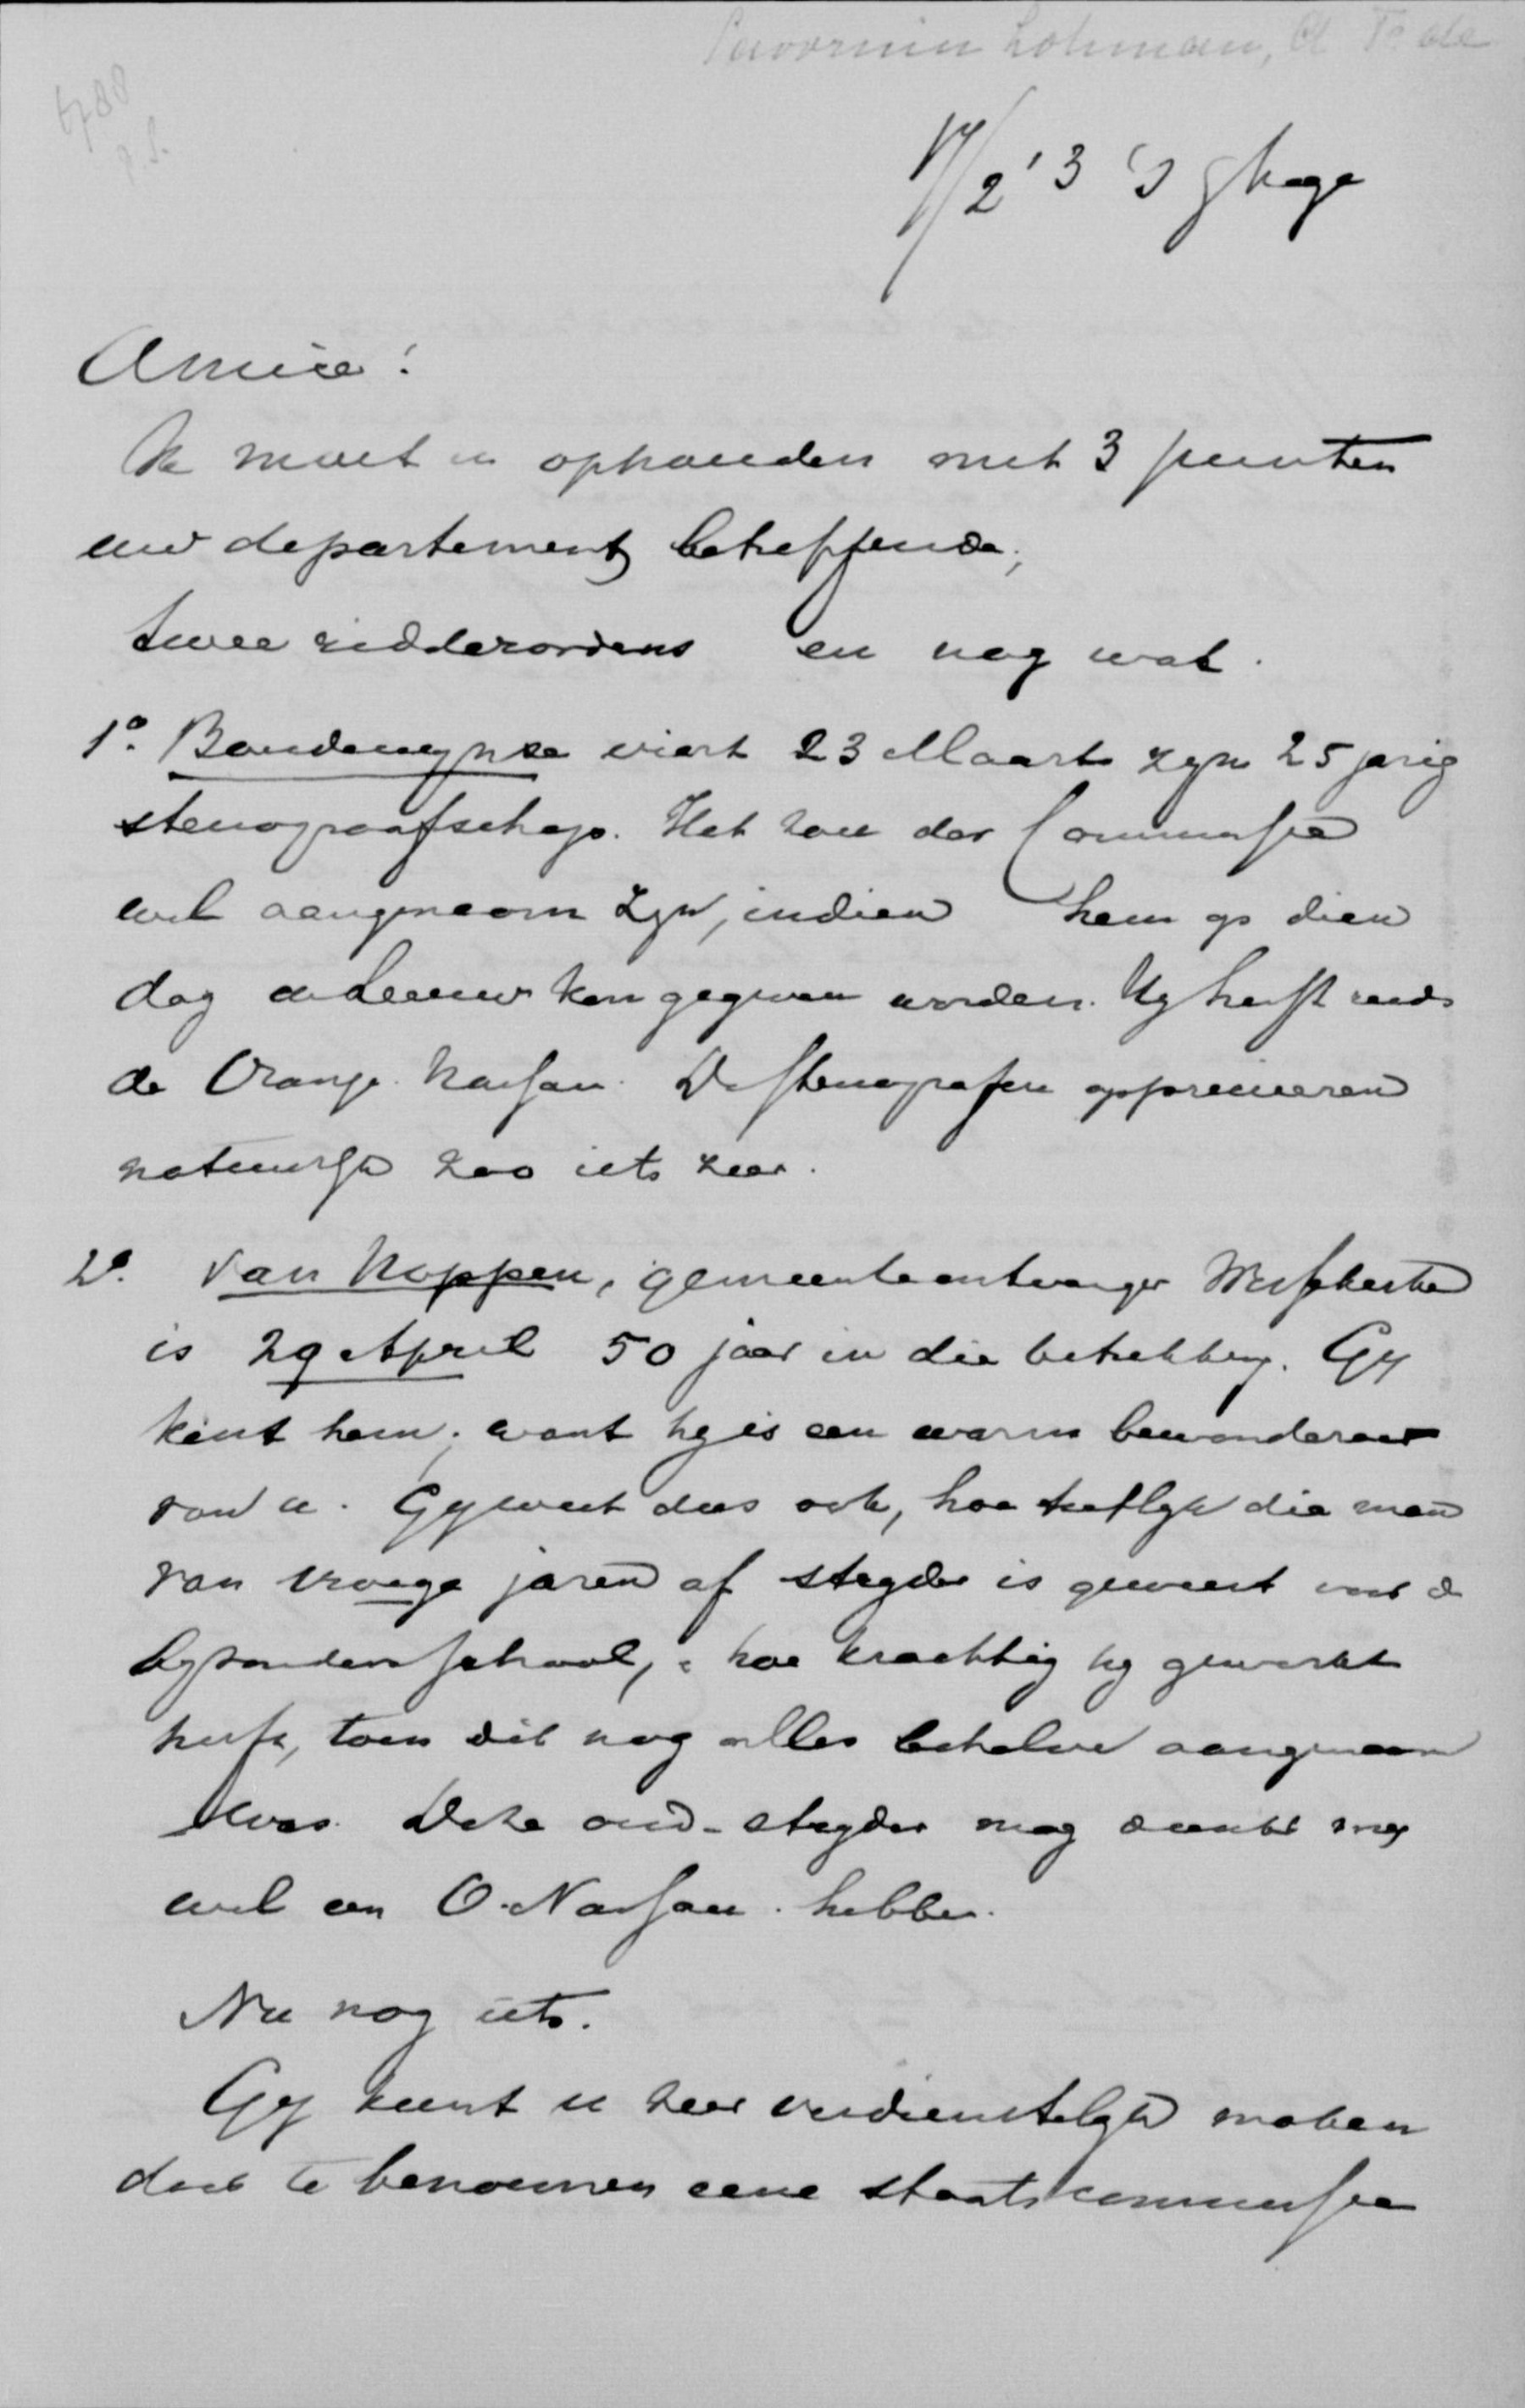 Savornin Lohman, A F. de
6788
17/2 '3 'sGhage
Amice!
Ik moet u ophouden met 3 punten
uw departement betreffende;
twee ridderordens en nog wat.
1o. Boudewynse viert 23 Maart zyn 25 jarig
stenograafschap. Het zou der Commissie
wel aangenaam zyn, indien hem op dien
dag de Leeuw kon gegeven worden. Hy heeft reeds
de Oranje Nassau. De stenografen apprecieeren
natuurlyk zoo iets zeer.
2o. van Noppen, gemeenteontvanger
is 29 April 50 jaar in die betrekking. Gy
kent hem; want hy is een warm bewonderaar
van u. Gy weet dus ook, hoe die man
van vroege jaren af stryder is geweest voor de
byzondere school, & hoe krachtig hy gewerkt
heeft, toen dit nog alles behalve aangenaam
was. Deze oud-stryder mag dunkt my
wel een O. Nassau hebben.
Nu nog iets.
Gy kunt u zeer verdienstelyk maken
door te benoemen eene staatscommissie